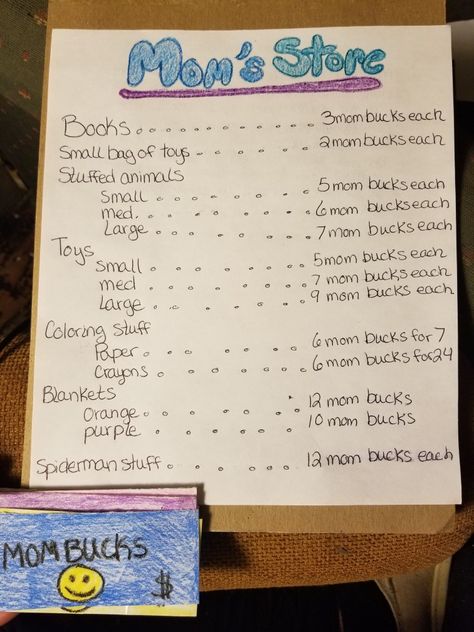 Mom's Store
Books . . . . . . . . . . . 3 mom bucks each
Small bag of toys - . . . . . 2 mom bucks each
Stuffed animals
Small . . . . . . . 5 mom bucks each
med. . . . . . . . 6 mom bucks each
Large . . . . . . . 7 mom bucks each
Toys
Small . . . . . . . 5 mom bucks each
med . . . . . . . 7 mom bucks each
Large . . . . . . 9 mom bucks each
Coloring stuff
Paper . . . . . . . 6 mom bucks for 7
Crayons . . . . . . . 6 mom bucks for 24
Blankets
Orange . . . . . . . 12 mom bucks
purple . . . . . . . 10 mom bucks
Spiderman stuff . . . . . . 12 mom bucks each
MOM BUCKS
$